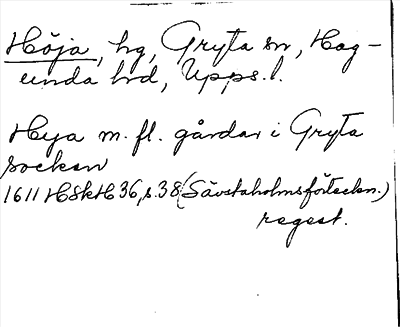 Höja, hg, Gryta sn, Hag-
unda hd, Upps. l.
Heya m. fl. gårdar i Gryta
socken
1611 HSkH 36, s. 38 (Sävstaholmsförteckn.)
regest.